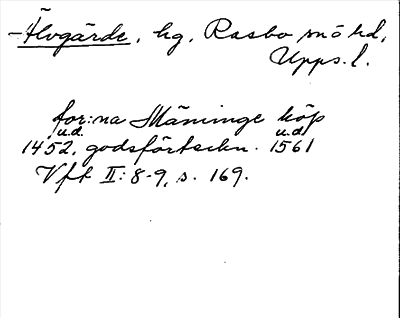 -Älvgärde, hg, Rasbo snö hd,
Upps. l.
for:na Mäninge köp
u.d. u.d.
1452, godsförteckn. 1561
Vft II: 8-9, s. 169.